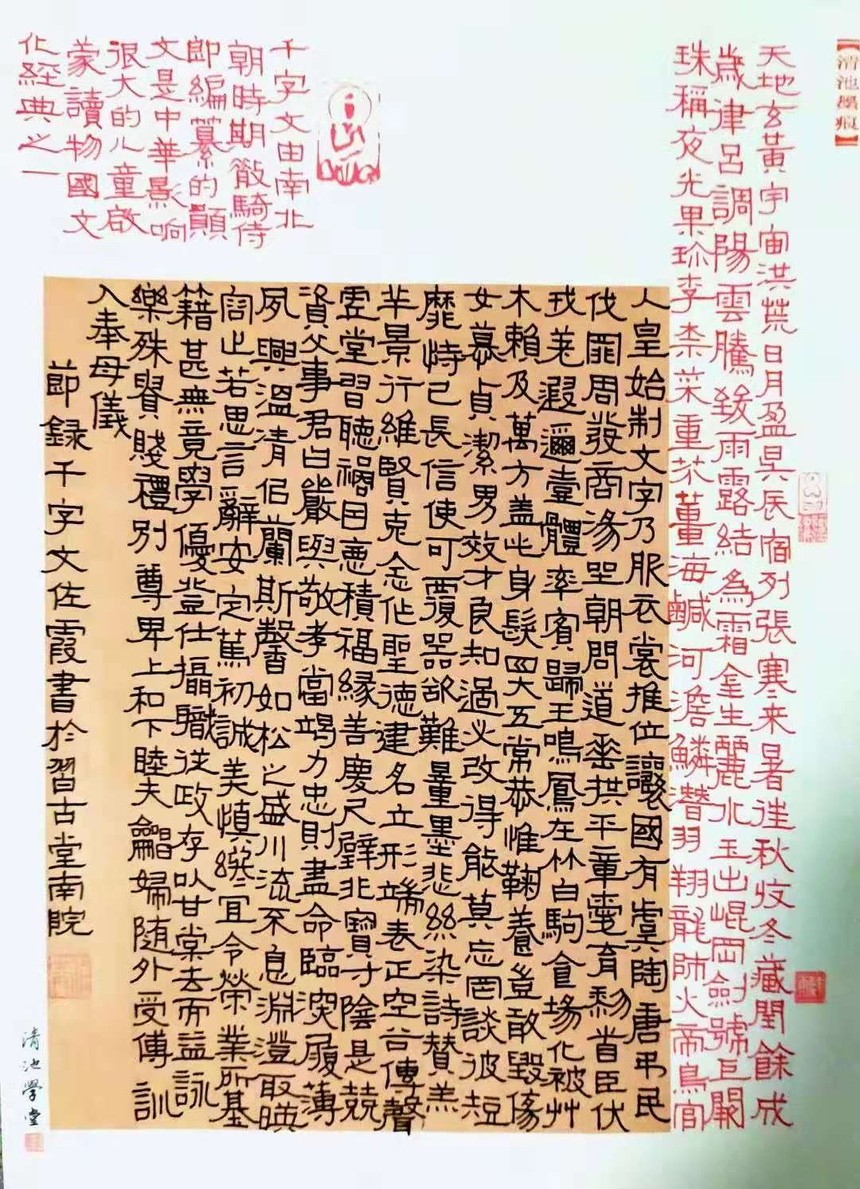 【清池墨痕】
天地玄黃宇宙洪荒日月盈昃辰宿列張寒来暑往秋收冬藏閏餘成
歲律呂調陽雲騰致雨露結為霜金生麗水玉出崐岡劍號巨闕
珠稱夜光果珍李柰菜重芥薑海鹹河澹鱗潛羽翔龍師火帝鳥官
人皇始制文字乃服衣裳推位讓國有虞陶唐弔民
伐罪周發商湯坐朝問道垂拱平章愛育黎首臣伏
戎羌遐邇壹體率賓歸王鳴鳳在竹白駒食場化被艸
木賴及萬方蓋此身髮四大五常恭惟鞠養豈敢毀傷
女慕貞潔男效才良知過必改得能莫忘罔談彼短
靡恃己長信使可覆器欲難量墨悲絲染詩贊羔
羊景行維賢克念作聖德建名立形端表正空谷傳聲
虛堂習聽禍因惡積福緣善慶尺璧非寶寸陰是競
資父事君曰嚴與敬孝當竭力忠則盡命臨深履薄
夙興溫凊佀蘭斯馨如松之盛川流不息淵澄取暎
容止若思言辭安定篤初誠美慎終宜令榮業所基
籍甚無竟學優登仕攝職從政存以甘棠去而益詠
樂殊貴賤禮別尊卑上和下睦夫唱婦随外受傅訓
入奉母儀
節録千字文佐霞書於習古堂南院
千字文由南北
朝時期散騎侍
郎編纂的顛
文是中華影响
很大的儿童啟
蒙讀物國文
化經典之一
清池学堂